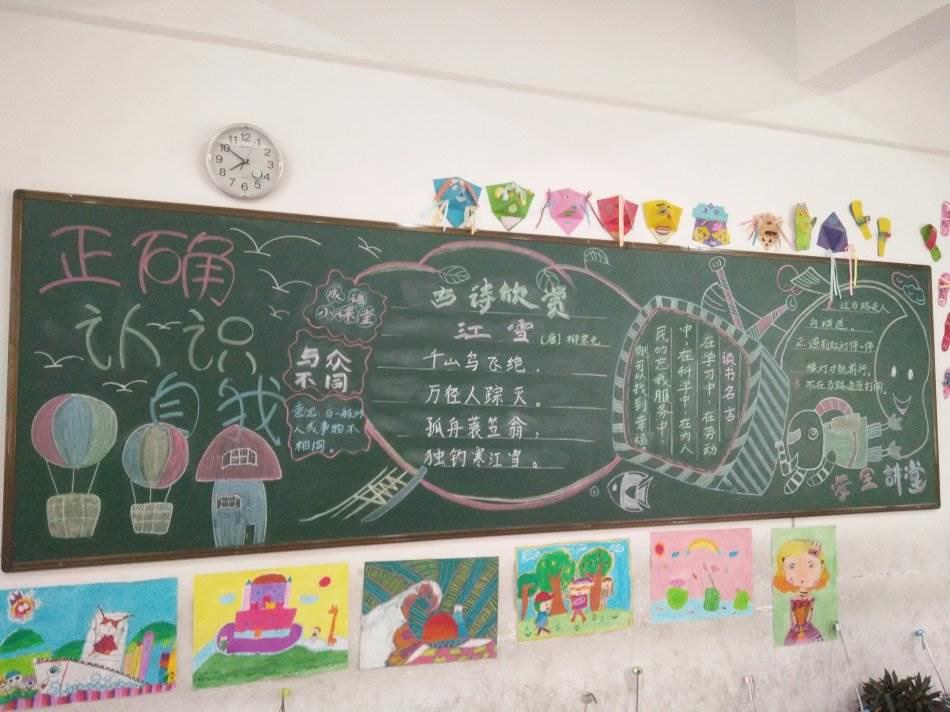 正确
认识
自我
成语
小课堂
与众
不同
意思：与一般的
人或事物不
相同。
古诗欣赏
江雪
〔唐〕柳宗元
千山鸟飞绝，
万径人踪灭。
孤舟蓑笠翁，
独钓寒江雪。
读书名言
在学习中，在劳动
中，在科学中，在为人
民的忘我服务中，
你可以找到幸福
过马路走人
行横道。
2. 遇到红灯停一停
绿灯才能前行。
3. 不在马路追逐打闹。
安全讲堂
12
1
2
3
4
5
6
7
8
9
10
11